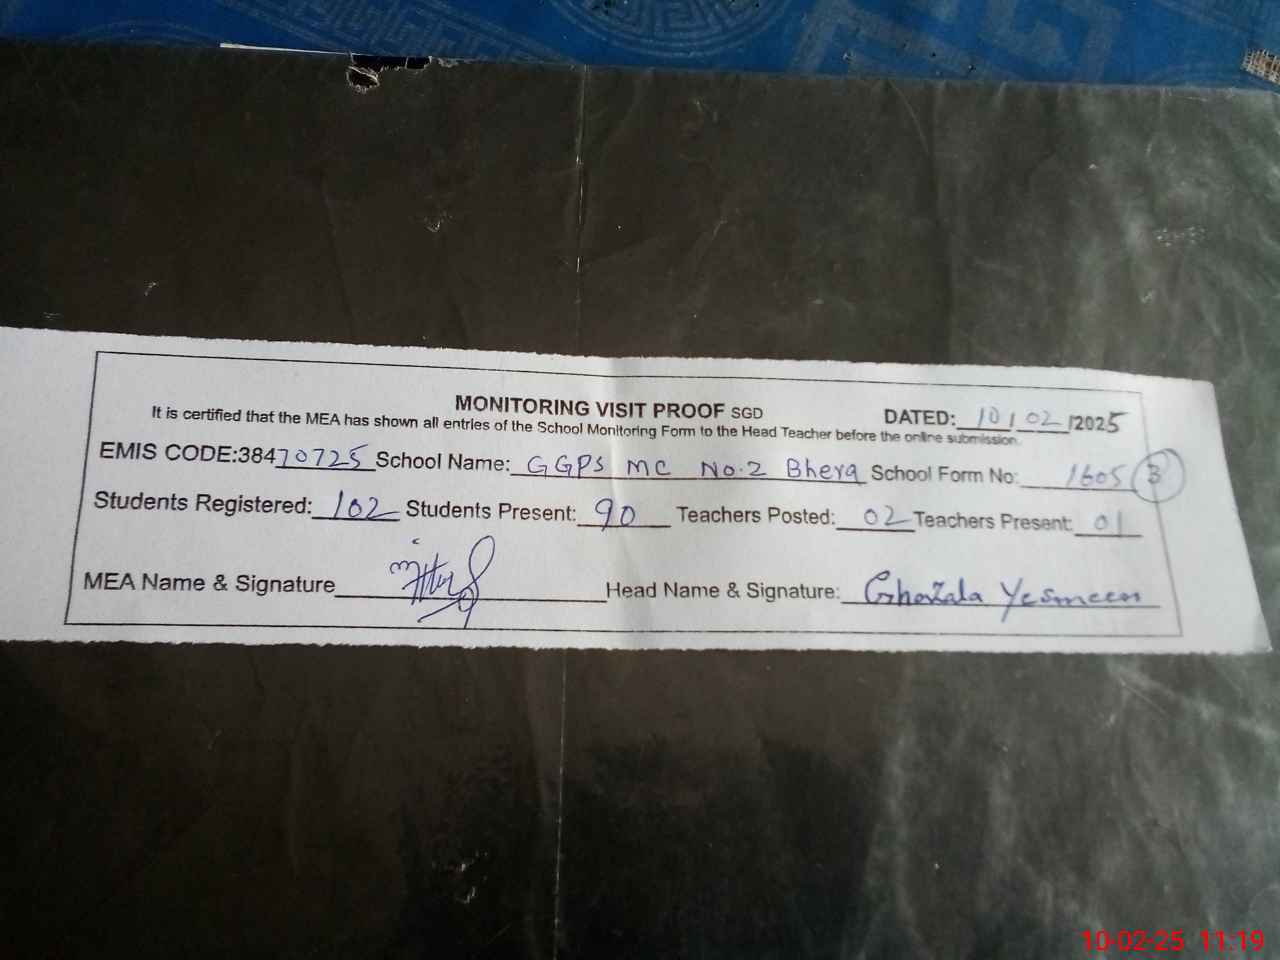 MONITORING VISIT PROOF SGD DATED: 10/02/2025
It is certified that the MEA has shown all entries of the School Monitoring Form to the Head Teacher before the online submission.
EMIS CODE:38470725 School Name: GGPS MC No.2 Bhera School Form No: 1605 3
Students Registered: 102 Students Present: 90 Teachers Posted: 02 Teachers Present: 01
MEA Name & Signature Head Name & Signature: Ghazala Yesmeen
10-02-25 11:19